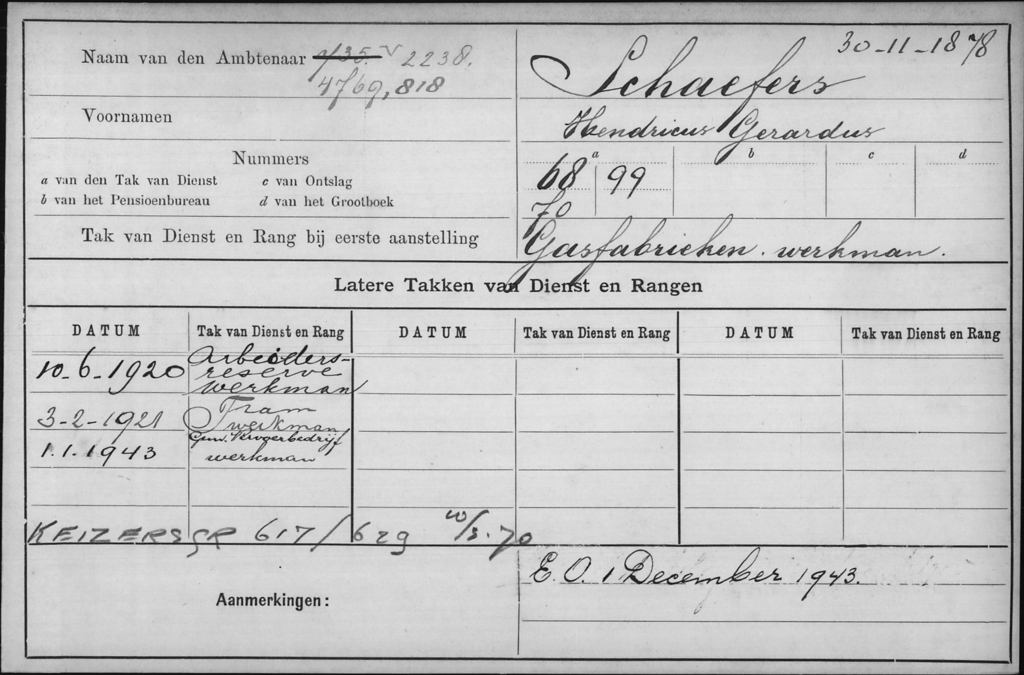 30-11-1878
Naam van den Ambtenaar 1/35. V 2238.
Schaefers
4769, 818
Voornamen
Hendricus Gerardus
Nummers
a van den Tak van Dienst c van Ontslag
b van het Pensioenbureau d van het Grootboek
a b c d
68 99
70
Tak van Dienst en Rang bij eerste aanstelling
Gasfabrieken. werkman.
Latere Takken van Dienst en Rangen
DATUM Tak van Dienst en Rang DATUM Tak van Dienst en Rang DATUM Tak van Dienst en Rang
10-6-1920 Arbeiders-
reserve
werkman
3-2-1921 Tram
werkman
1.1.1943 Gem. Vervoerbedrijf
werkman
KEIZERSGR 617/629 10/3.70
E.O. 1 December 1943.
Aanmerkingen: